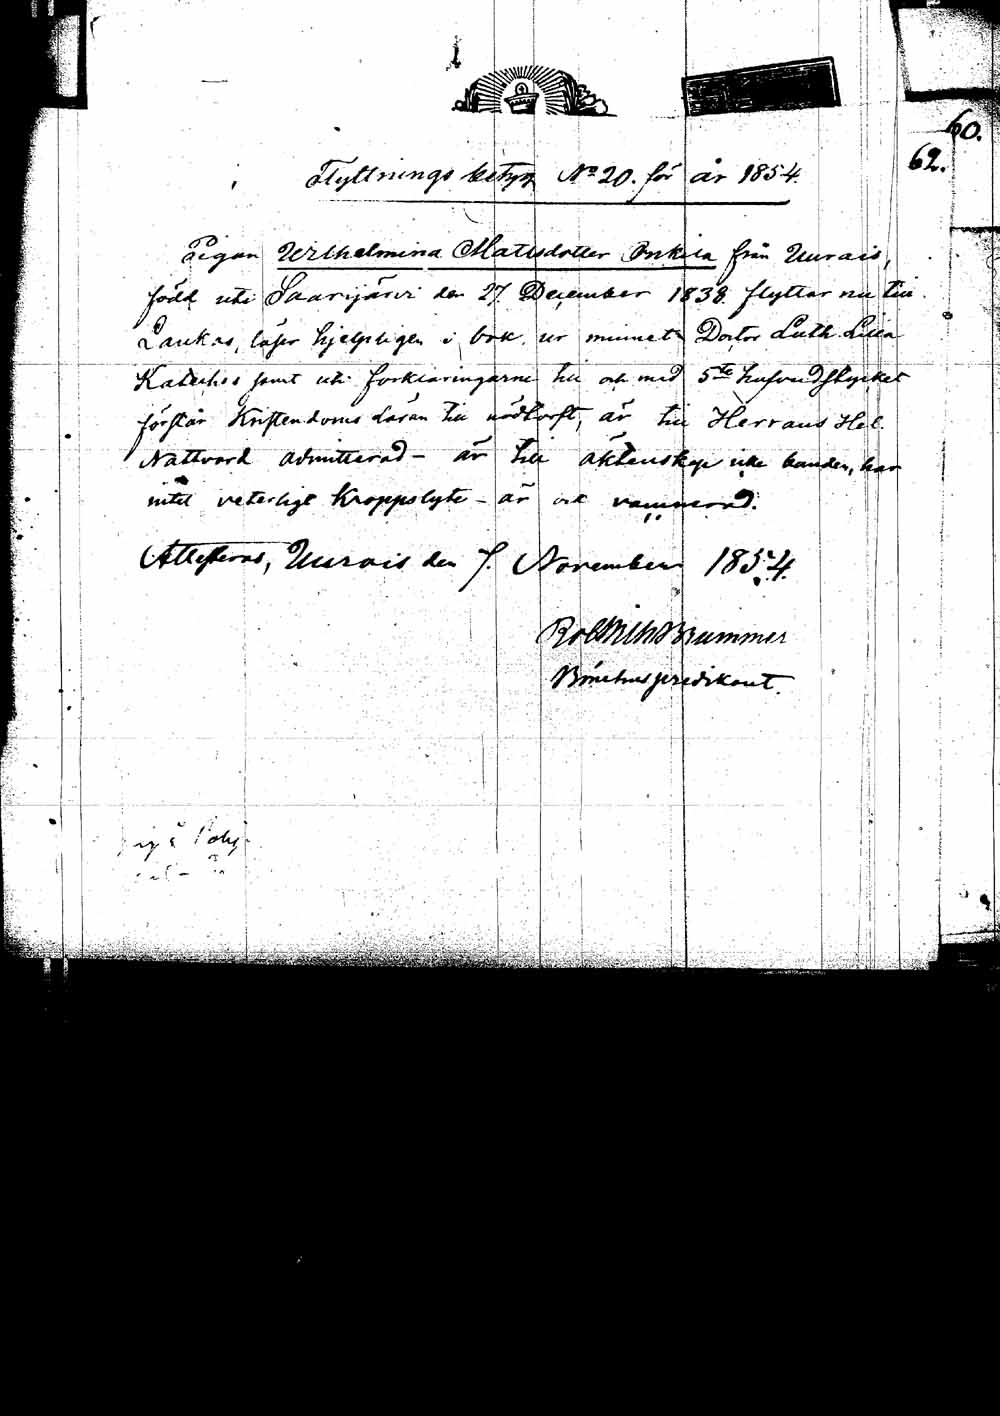 60.
62.
Flyttnings betyg No 20. för år 1854.
Pigan Wilhelmina Mattsdotter Onkila från Uurais,
född uti Saarijärvi den 27 December 1838. flyttar nu till
Laukas, läser hjelpligen i bok, ur minnet Doctor Luth. Lilla
Kateches samt uti förklaringarne till och med 5te hufvudstycket
förstår Kristendoms läran till nödtorft, är till Herrans Hel.
Nattvard admitterad - är till äktenskap icke bunden, har
intet veterligt kroppslyte - är ock vaccinerad.
Attesteras, Uurais den 7. November 1854.
Brummer
Bönehuspredikant.